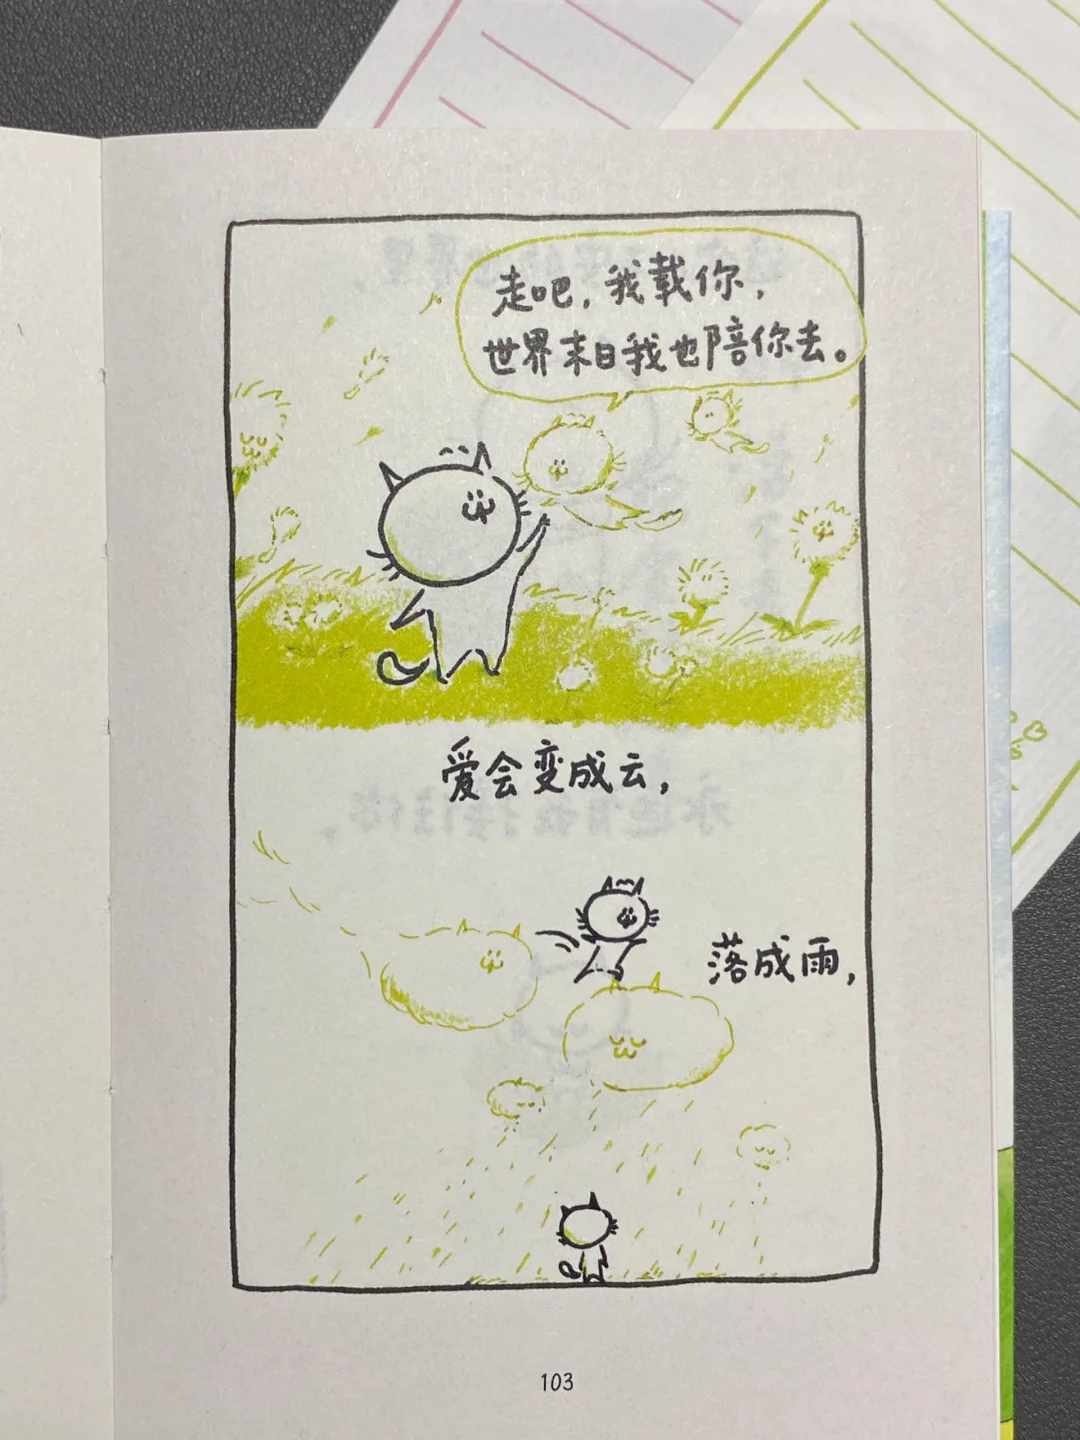 走吧，我载你，
世界末日我也陪你去。
爱会变成云，
落成雨，
103